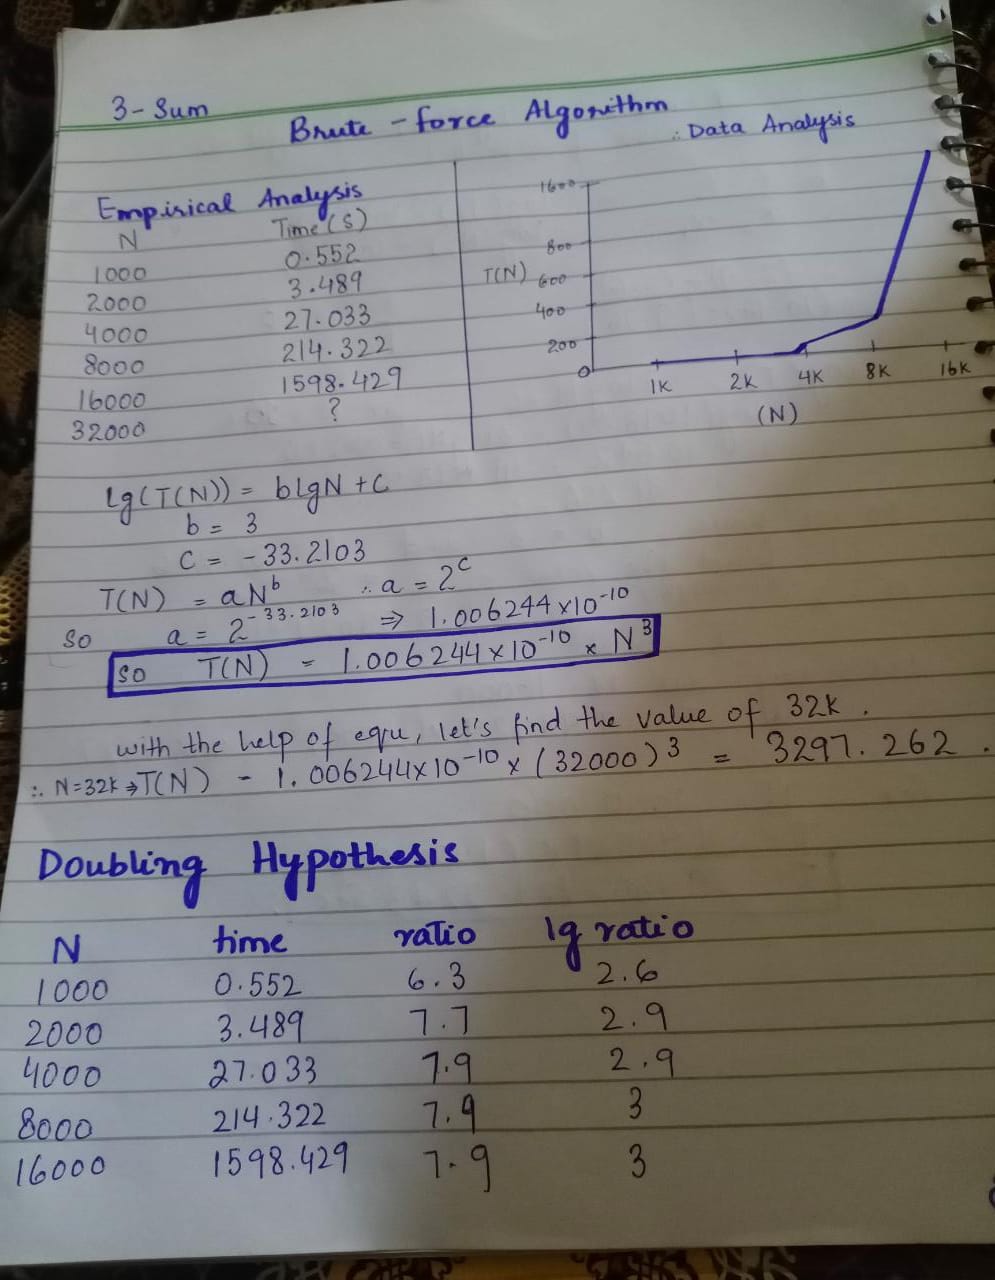 3-Sum
Brute-force Algorithm
∴ Data Analysis
Empirical Analysis
N Time(S)
1000 0.552
2000 3.489
4000 27.033
8000 214.322
16000 1598.429
32000 ?
1600
800
T(N) 600
400
200
0
1K 2K 4K 8K 16K
(N)
lg(T(N)) = blgN + C
b = 3
C = -33.2103
T(N) = aN^b ∴ a = 2^c
So a = 2^-33.2103 ⇒ 1.006244×10^-10
So T(N) = 1.006244×10^-10 × N^3
with the help of equ, let's find the value of 32K.
∴ N=32K ⇒ T(N) = 1.006244×10^-10 × (32000)^3 = 3297.262.
Doubling Hypothesis
N time ratio lg ratio
1000 0.552 6.3 2.6
2000 3.489 7.7 2.9
4000 27.033 7.9 2.9
8000 214.322 7.9 3
16000 1598.429 7.9 3